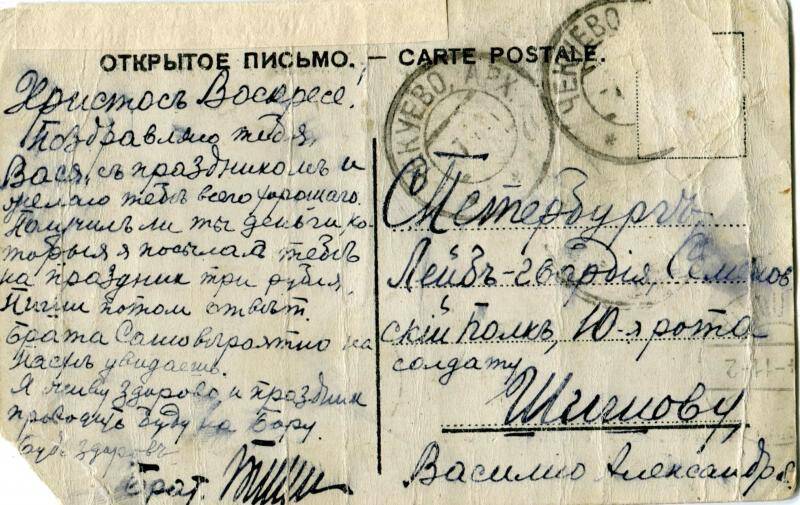 ОТКРЫТОЕ ПИСЬМО. — CARTE POSTALE.
Христосъ Воскресе!
Поздравляю тебя,
Вася, съ праздникомъ и
желаю тебѣ всего хорошаго.
Получилъ ли ты деньги, ко-
торыя я посылалъ тебѣ
на праздникъ три рубля.
Пиши потом отвѣт.
Брата Сашо вѣроятно на
Пасхѣ увидаешь.
Я живу здорово и праздник
проводить буду на Бору.
Будь здоровъ
Брат.
Петербургъ
Лейбъ-гвардія, Семенов
скій Полкъ, 10-я рота
солдату
Шишову
Василию Александр.
ЧЕКУЕВО
КУЕВО, АРХ.